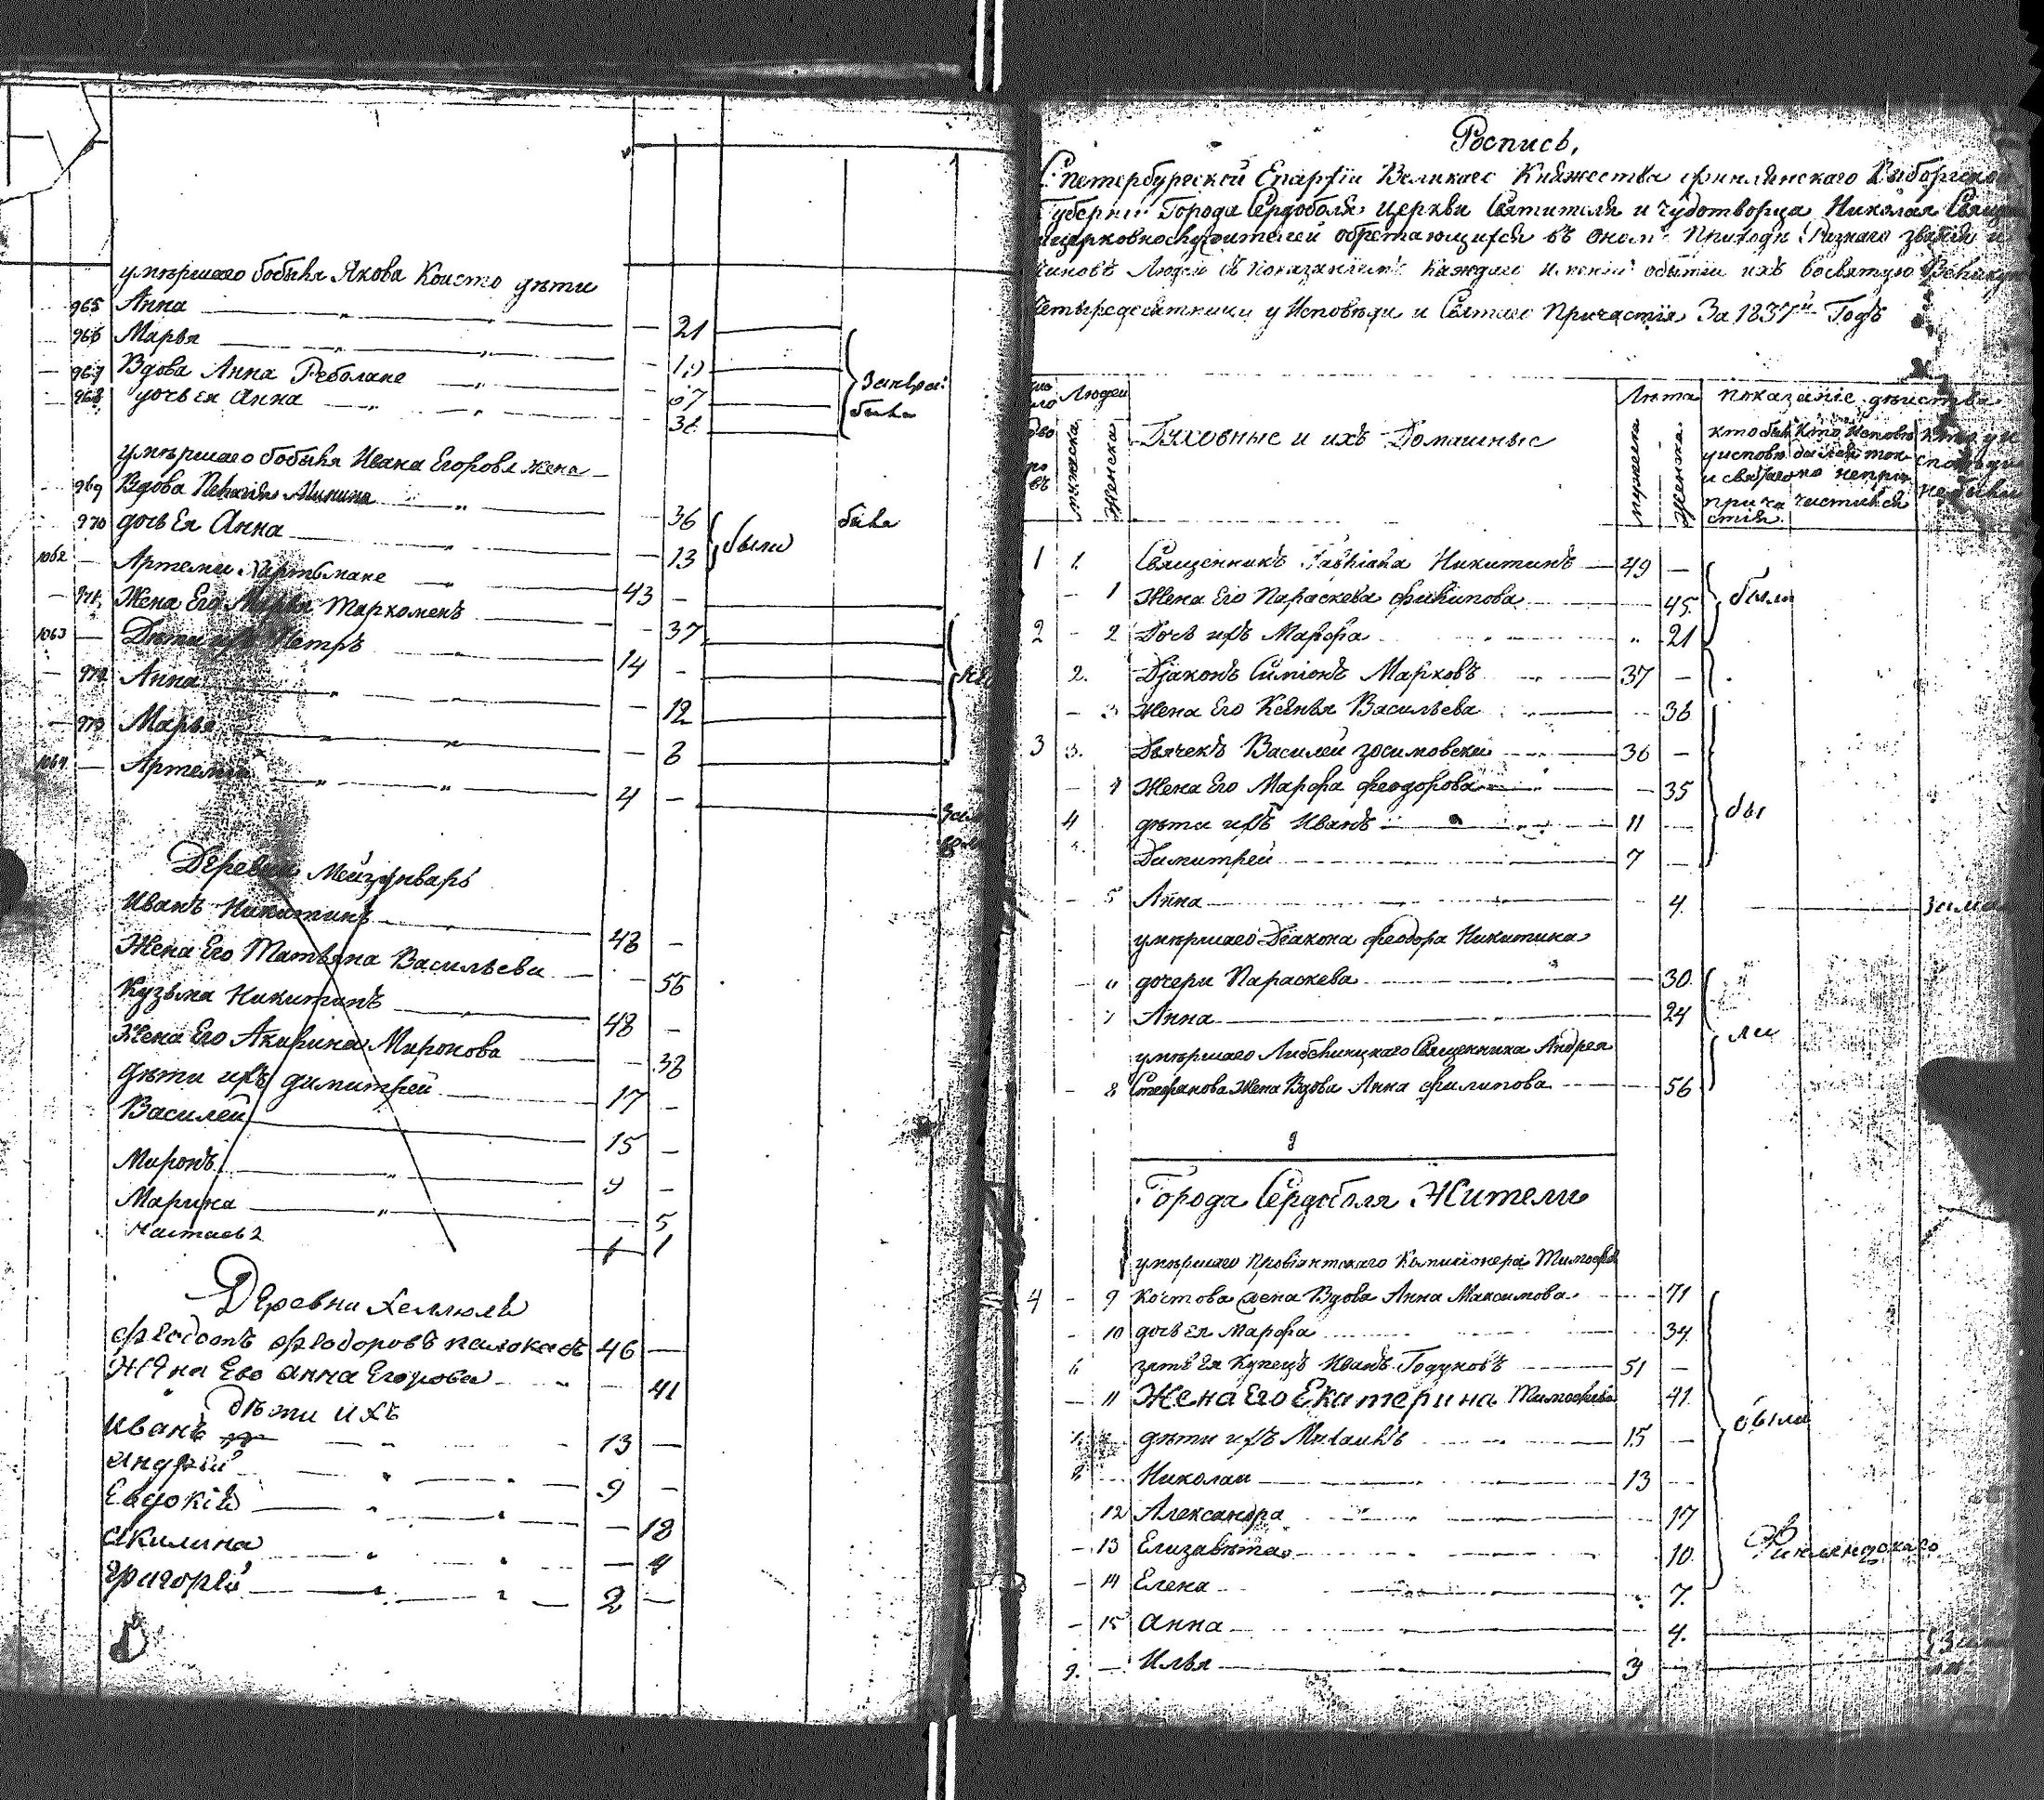 умершаго бобыля Якова Коисто дѣти
965 Анна — 21
966 Марья —
967 Вдова Анна Реболане — 67
968 дочь ея Анна — 38
умершаго бобыля Ивана Егорова жена
969 Вдова Минина — 36 была
970 дочь Ея Анна — 13 были
1062 — Артеми 43 —
971 Жена Его Марья Таркоменъ — 37
1063 — Дѣти ихъ Петръ 14 —
972 Анна — 12
973 Марья — 8
1064 — Артемій 4 —
Деревни
Иванъ Никитинъ 48 —
Жена Его Татьяна Васильева — 56
Кузьма Никитинъ 48 —
Жена Его Акилина Миронова — 38
Дѣти ихъ димитрей 17 —
Василей 15 —
Миронъ 9 —
Марина — 5
1
Деревни Хелюля
Федотъ Федоровъ 46 —
Жена Ево Анна Егорова — 41
Дѣти ихъ
Иванъ 13 —
Андрей 9 —
Евдокія — 18
Акилина — 4
Григорей 2 —
Роспись,
С: Петербургской Епархіи Великаго Княжества финлянскаго Выборгской
Губерніи Города Сердоболя Церкви Святителя и чудотворца Николая
ицерковнослужителей обретающихся въ ономъ Приходѣ Разнаго званія и
чиновъ Людей съ показаніемъ каждаго имении обытіи ихъ восвятую Великую
Четыредесятницу у Исповѣди и Святаго Причастія За 1837й Годъ
Людей Лѣта показаніе дѣиства
мужеска Женска Духовные и ихъ Домашные мужеска женска
кто былъ уисповѣ и святаго прича стія
кто исповѣ былъ ток- мо непри- частился
кто уи споведи небылъ
1 1 Священникъ Никитинъ 49 — были
— 1 Жена Его Параскева филипова — 45
2 — 2 Дочь ихъ Марфа " 21
2. Діаконъ Симіонъ Марковъ 37 —
— 3 Жена Его Ксенья Васильева — 36
3 3. Дьячекъ Василей зосимовскій 36 —
— 4 Жена Его Марфа феодорова — 35 бы
4 дѣти ихъ Иванъ 11 —
Димитрей 7 —
— 5 Анна — 4.
умершаго Діакона феодора Никитина
— 6 дочери Параскева — 30.
— 7 Анна — 24 ли
умершаго Священника Андрея
— 8 Стефанова Жена Вдова Анна филипова — 56
Города Сердоболя Жители
умершаго Провіантскаго Комисіонера Тимофея
4 — 9 Костова жена Вдова Анна Максимова — 71
— 10 дочь ея Марфа — 34
6 зять Ея Купецъ Иванъ Годуновъ 51 —
— 11 Жена Его Екатерина Тимофеева 41 были
7 дѣти ихъ Михаилъ 15 —
8 Николаи 13 —
12 Александра 17
— 13 Елизавѣта 10 Финляндскаго
— 14 Елена 7.
— 15 Анна 4.
9. — Илья 3 —